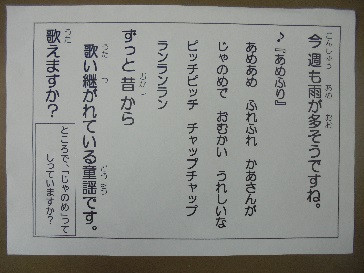 今週も雨が多そうですね。
♪『あめふり』
あめあめ ふれふれ かあさんが
じゃのめで おむかい うれしいな
ピッチピッチ チャップチャップ
ランランラン
ずっと昔から
歌い継がれている童謡です。
歌えますか？
ところで、「じゃのめ」って
しっていますか？